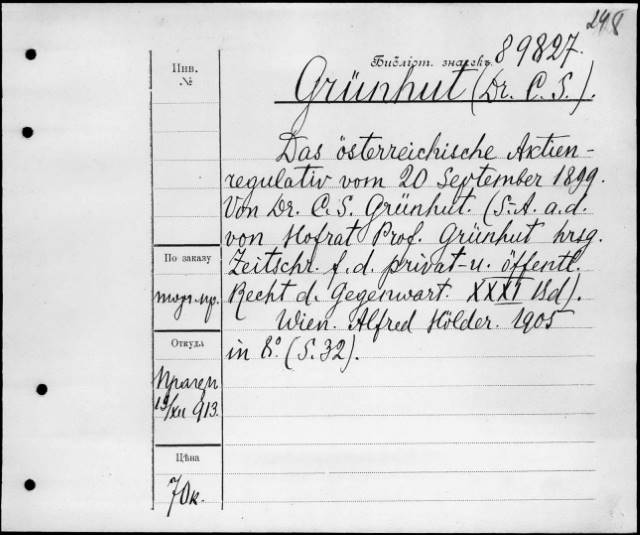 298
Библіот. знаекъ. 89827.
Инв.
№
Grünhut (Dr. C. S.).
Das österreichische Aktien-
regulativ vom 20 September 1899.
Von Dr. C. S. Grünhut. (S.-A. a. d.
von Hofrat Prof. Grünhut hrsg.
Zeitschr. f. d. privat- u. öffentl.
Recht d. Gegenwart. XXXI Bd).
Wien. Alfred Hölder. 1905
in 8º. (S. 32).
По заказу
торг. пр.
Откуда
13/XII 913.
Цѣна
70 к.